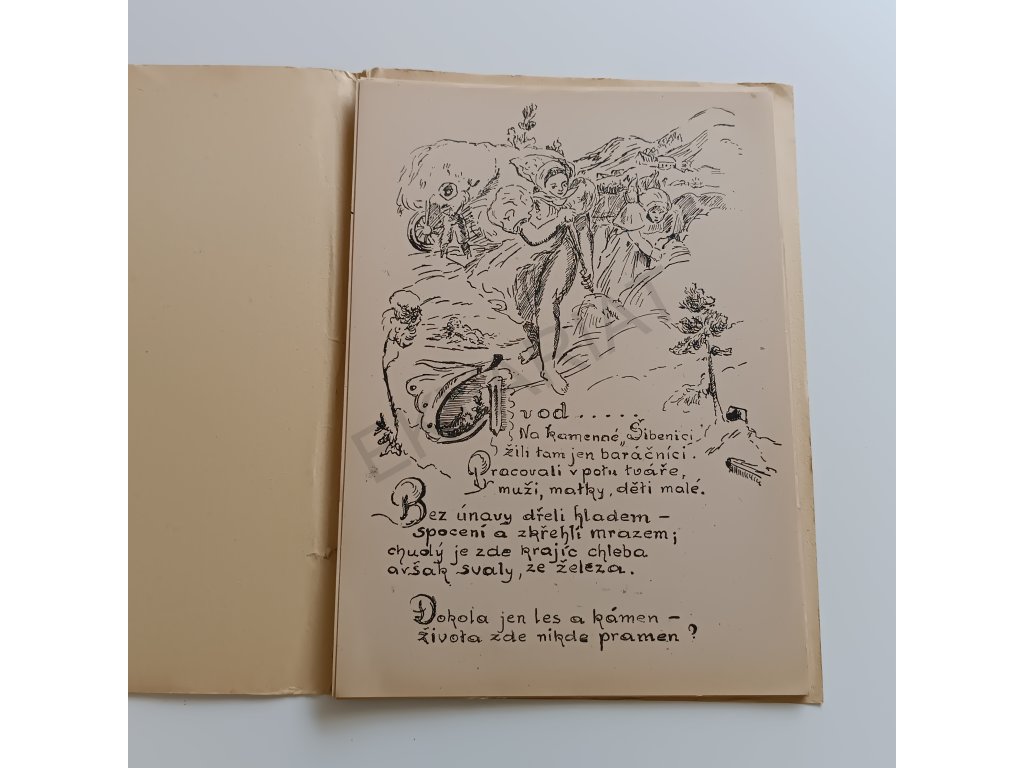 Úvod.....
Na kamenné „Šibenici
žili tam jen baráčníci.
Pracovali v potu tváře,
muži, matky, děti malé.
Bez únavy dřeli hladem –
spocení a zkřehlí mrazem;
chudý je zde krajíc chleba
avšak svaly, ze železa.
Dokola jen les a kámen –
života zde nikde pramen?